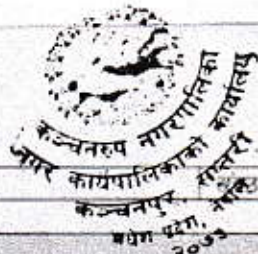 कञ्चनरुप नगरपालिका
नगर कार्यपालिकाको कार्यालय
कञ्चनपुर, सप्तरी
मधेश प्रदेश, नेपाल
२०७३